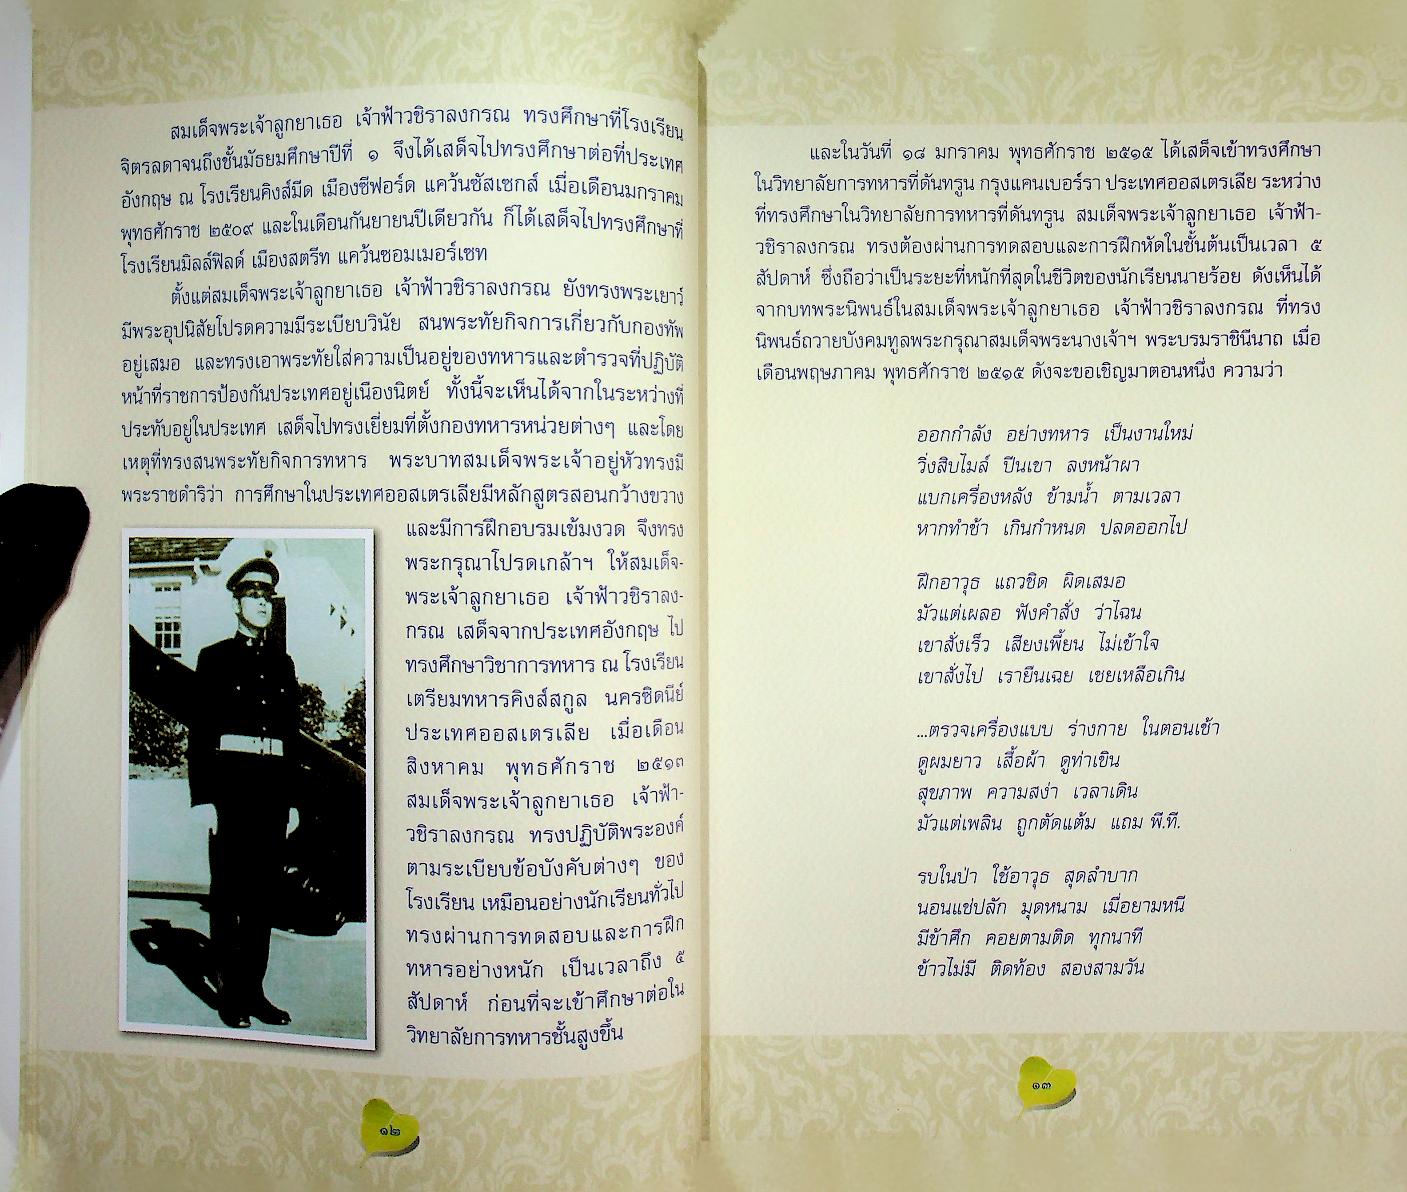 สมเด็จพระเจ้าลูกยาเธอ เจ้าฟ้าวชิราลงกรณ ทรงศึกษาที่โรงเรียน
จิตรลดาจนถึงชั้นมัธยมศึกษาปีที่ ๑ จึงได้เสด็จไปทรงศึกษาต่อที่ประเทศ
อังกฤษ ณ โรงเรียนคิงส์มีด เมืองซีฟอร์ด แคว้นซัสเซกส์ เมื่อเดือนมกราคม
พุทธศักราช ๒๕๐๙ และในเดือนกันยายนปีเดียวกัน ก็ได้เสด็จไปทรงศึกษาที่
โรงเรียนมิลล์ฟิลด์ เมืองสตรีท แคว้นซอมเมอร์เซท
ตั้งแต่สมเด็จพระเจ้าลูกยาเธอ เจ้าฟ้าวชิราลงกรณ ยังทรงพระเยาว์
มีพระอุปนิสัยโปรดความมีระเบียบวินัย สนพระทัยกิจการเกี่ยวกับกองทัพ
อยู่เสมอ และทรงเอาพระทัยใส่ความเป็นอยู่ของทหารและตำรวจที่ปฏิบัติ
หน้าที่ราชการป้องกันประเทศอยู่เนืองนิตย์ ทั้งนี้จะเห็นได้จากในระหว่างที่
ประทับอยู่ในประเทศ เสด็จไปทรงเยี่ยมที่ตั้งกองทหารหน่วยต่างๆ และโดย
เหตุที่ทรงสนพระทัยกิจการทหาร พระบาทสมเด็จพระเจ้าอยู่หัวทรงมี
พระราชดำริว่า การศึกษาในประเทศออสเตรเลียมีหลักสูตรสอนกว้างขวาง
และมีการฝึกอบรมเข้มงวด จึงทรง
พระกรุณาโปรดเกล้าฯ ให้สมเด็จ-
พระเจ้าลูกยาเธอ เจ้าฟ้าวชิราลง-
กรณ เสด็จจากประเทศอังกฤษ ไป
ทรงศึกษาวิชาการทหาร ณ โรงเรียน
เตรียมทหารคิงส์สกูล นครซิดนีย์
ประเทศออสเตรเลีย เมื่อเดือน
สิงหาคม พุทธศักราช ๒๕๑๓
สมเด็จพระเจ้าลูกยาเธอ เจ้าฟ้า-
วชิราลงกรณ ทรงปฏิบัติพระองค์
ตามระเบียบข้อบังคับต่างๆ ของ
โรงเรียน เหมือนอย่างนักเรียนทั่วไป
ทรงผ่านการทดสอบและการฝึก
ทหารอย่างหนัก เป็นเวลาถึง ๕
สัปดาห์ ก่อนที่จะเข้าศึกษาต่อใน
วิทยาลัยการทหารชั้นสูงขึ้น
๑๒
และในวันที่ ๑๘ มกราคม พุทธศักราช ๒๕๑๕ ได้เสด็จเข้าทรงศึกษา
ในวิทยาลัยการทหารที่ดันทรูน กรุงแคนเบอร์รา ประเทศออสเตรเลีย ระหว่าง
ที่ทรงศึกษาในวิทยาลัยการทหารที่ดันทรูน สมเด็จพระเจ้าลูกยาเธอ เจ้าฟ้า-
วชิราลงกรณ ทรงต้องผ่านการทดสอบและการฝึกหัดในชั้นต้นเป็นเวลา ๕
สัปดาห์ ซึ่งถือว่าเป็นระยะที่หนักที่สุดในชีวิตของนักเรียนนายร้อย ดังเห็นได้
จากบทพระนิพนธ์ในสมเด็จพระเจ้าลูกยาเธอ เจ้าฟ้าวชิราลงกรณ ที่ทรง
นิพนธ์ถวายบังคมทูลพระกรุณาสมเด็จพระนางเจ้าฯ พระบรมราชินีนาถ เมื่อ
เดือนพฤษภาคม พุทธศักราช ๒๕๑๕ ดังจะขอเชิญมาตอนหนึ่ง ความว่า
ออกกำลัง อย่างทหาร เป็นงานใหม่
วิ่งสิบไมล์ ปีนเขา ลงหน้าผา
แบกเครื่องหลัง ข้ามน้ำ ตามเวลา
หากทำช้า เกินกำหนด ปลดออกไป
ฝึกอาวุธ แถวชิด ผิดเสมอ
มัวแต่เผลอ ฟังคำสั่ง ว่าไฉน
เขาสั่งเร็ว เสียงเพี้ยน ไม่เข้าใจ
เขาสั่งไป เรายืนเฉย เชยเหลือเกิน
...ตรวจเครื่องแบบ ร่างกาย ในตอนเช้า
ดูผมยาว เสื้อผ้า ดูท่าเขิน
สุขภาพ ความสง่า เวลาเดิน
มัวแต่เพลิน ถูกตัดแต้ม แถม พี.ที.
รบในป่า ใช้อาวุธ สุดลำบาก
นอนแช่ปลัก มุดหนาม เมื่อยามหนี
มีข้าศึก คอยตามติด ทุกนาที
ข้าวไม่มี ติดท้อง สองสามวัน
๑๓